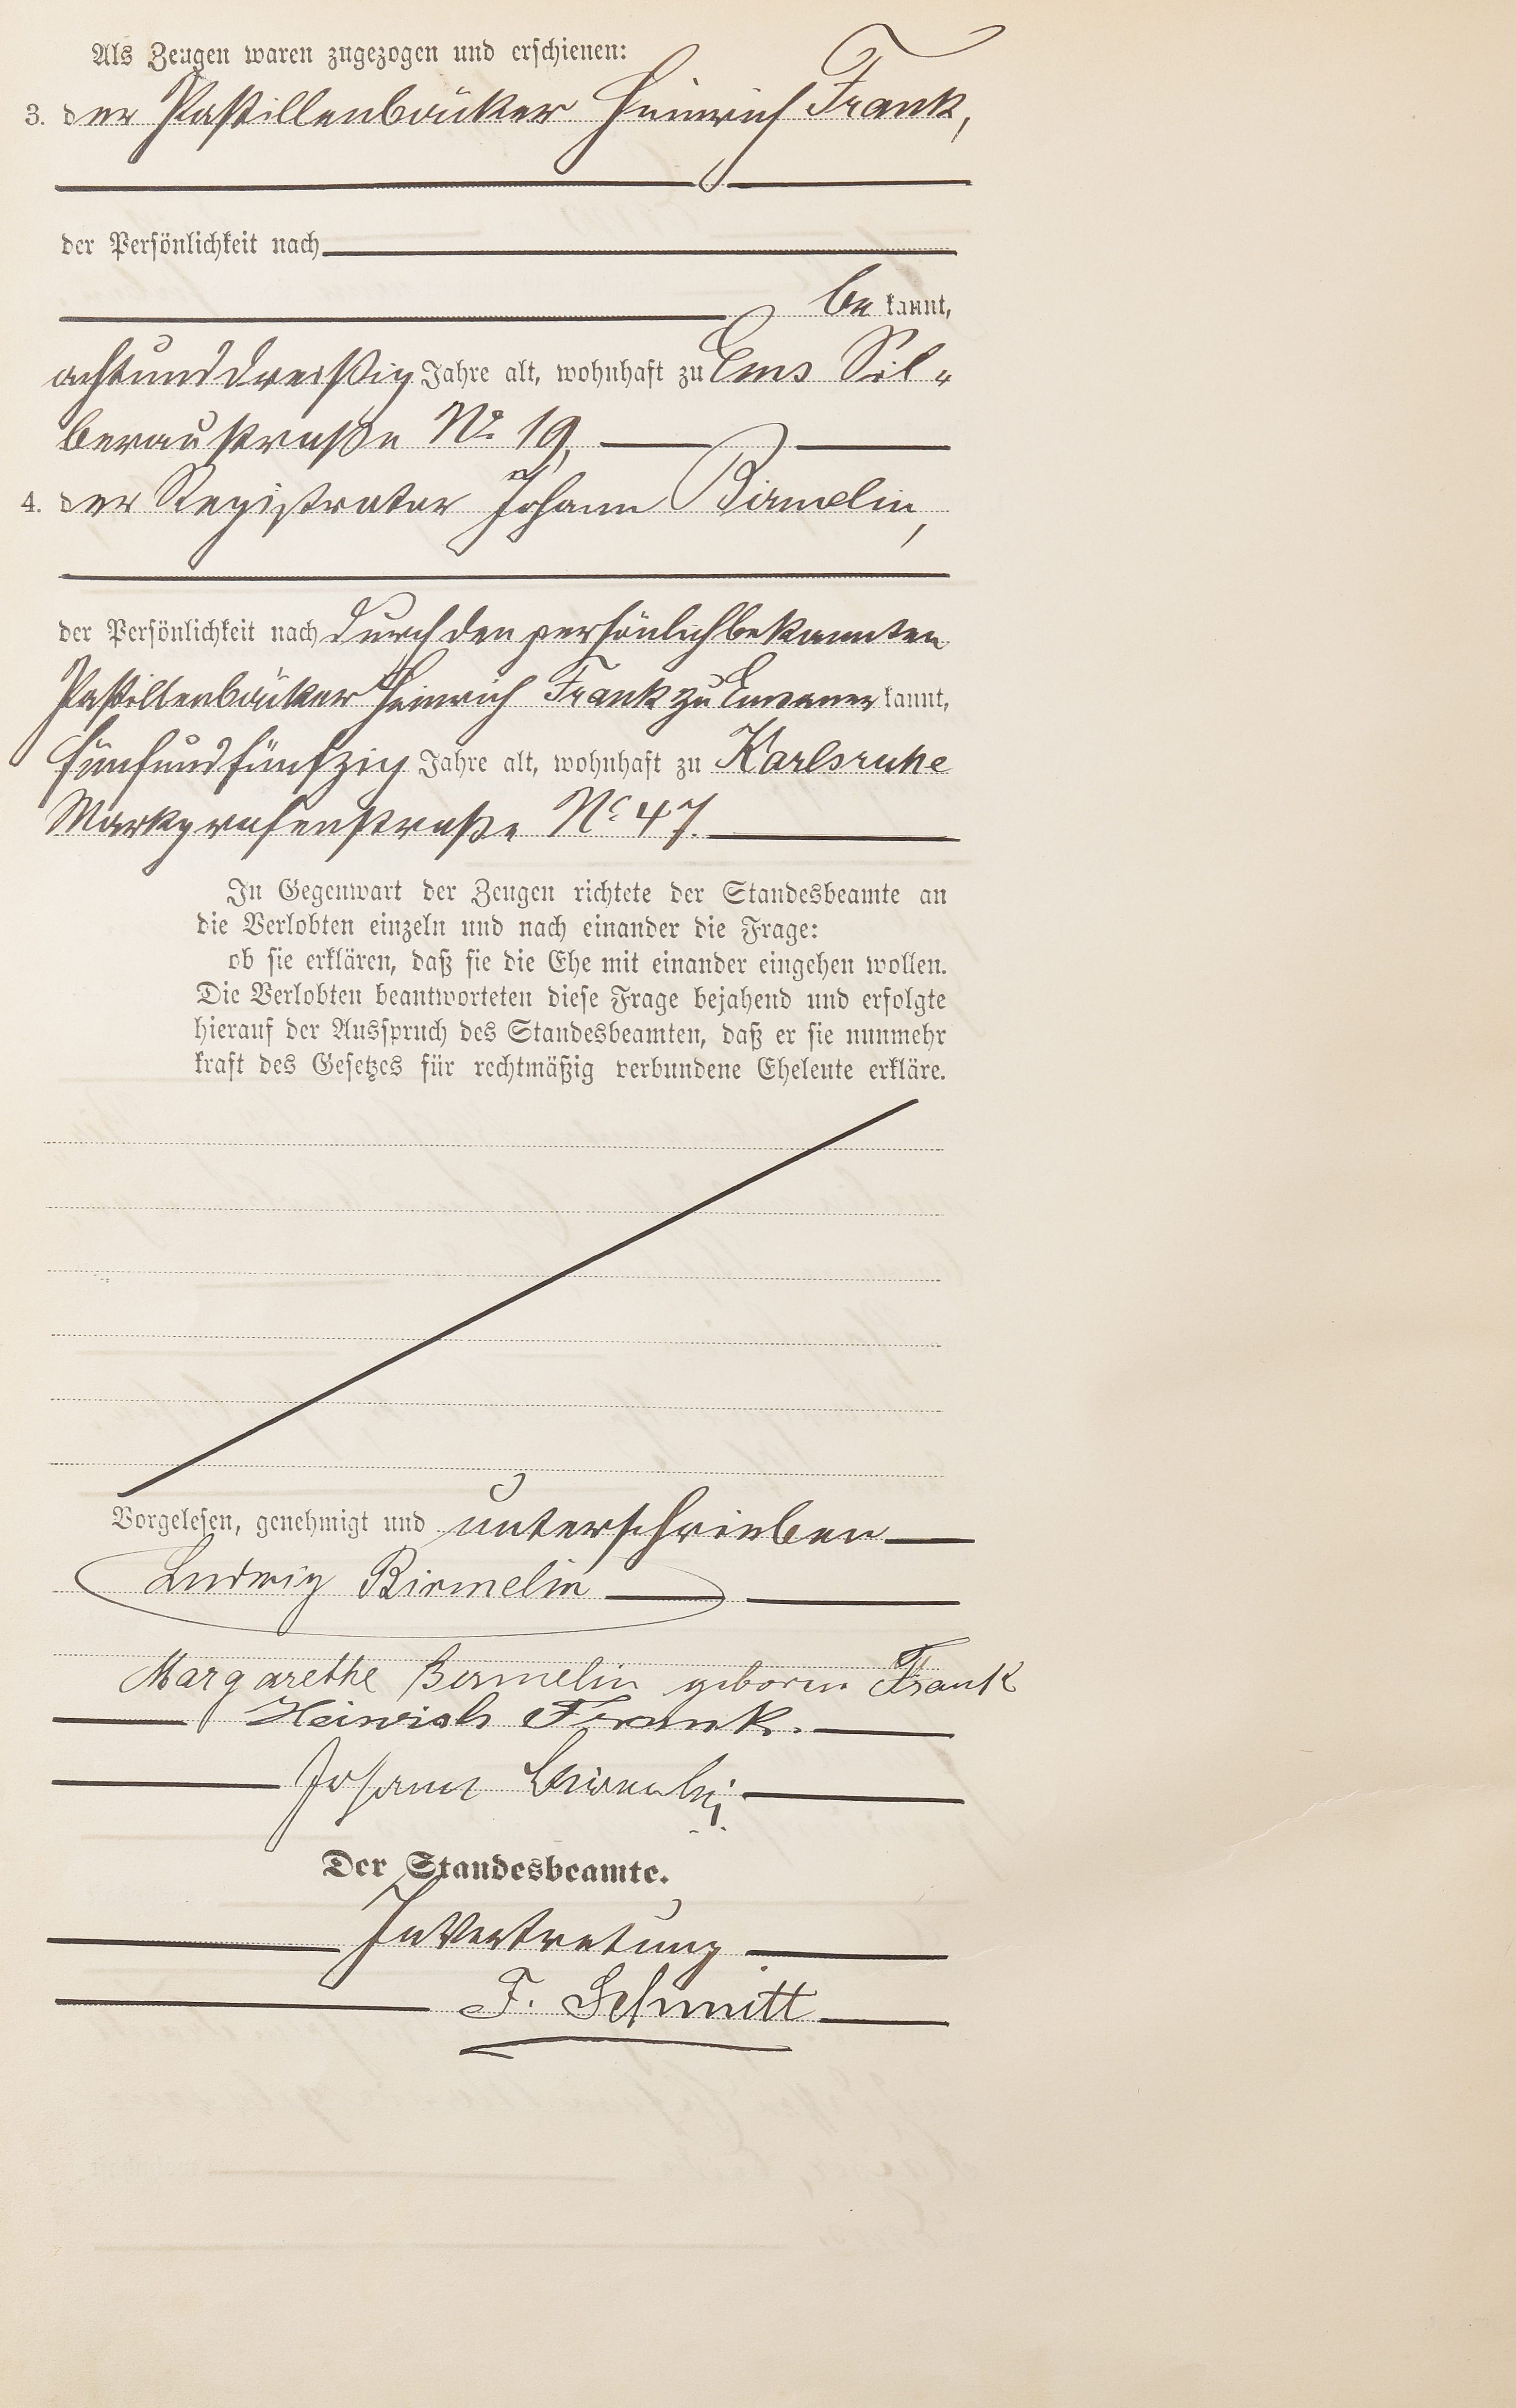 Als Zeugen waren zugezogen und erschienen:
3. der Pastillenbäcker Heinrich Frank,
der Persönlichkeit nach
be kannt,
achtunddreißig Jahre alt, wohnhaft zu Ems Sil-
beraustraße No 19,
4. der Registrator Johann Birmelin,
der Persönlichkeit nach durch den persönlich bekannten
Pastillenbäcker Heinrich Frank zu Ems aner kannt,
fünfundfünfzig Jahre alt, wohnhaft zu Karlsruhe
Markgrafenstraße No 47.
In Gegenwart der Zeugen richtete der Standesbeamte an
die Verlobten einzeln und nach einander die Frage:
ob sie erklären, daß sie die Ehe mit einander eingehen wollen.
Die Verlobten beantworteten diese Frage bejahend und erfolgte
hierauf der Ausspruch des Standesbeamten, daß er sie nunmehr
kraft des Gesetzes für rechtmäßig verbundene Eheleute erkläre.
Vorgelesen, genehmigt und unterschrieben
Ludwig Birmelin
Margarethe Birmelin geboren Frank
Heinrich Frank.
Johann Birmelin
Der Standesbeamte.
In Vertretung
F. Schmitt